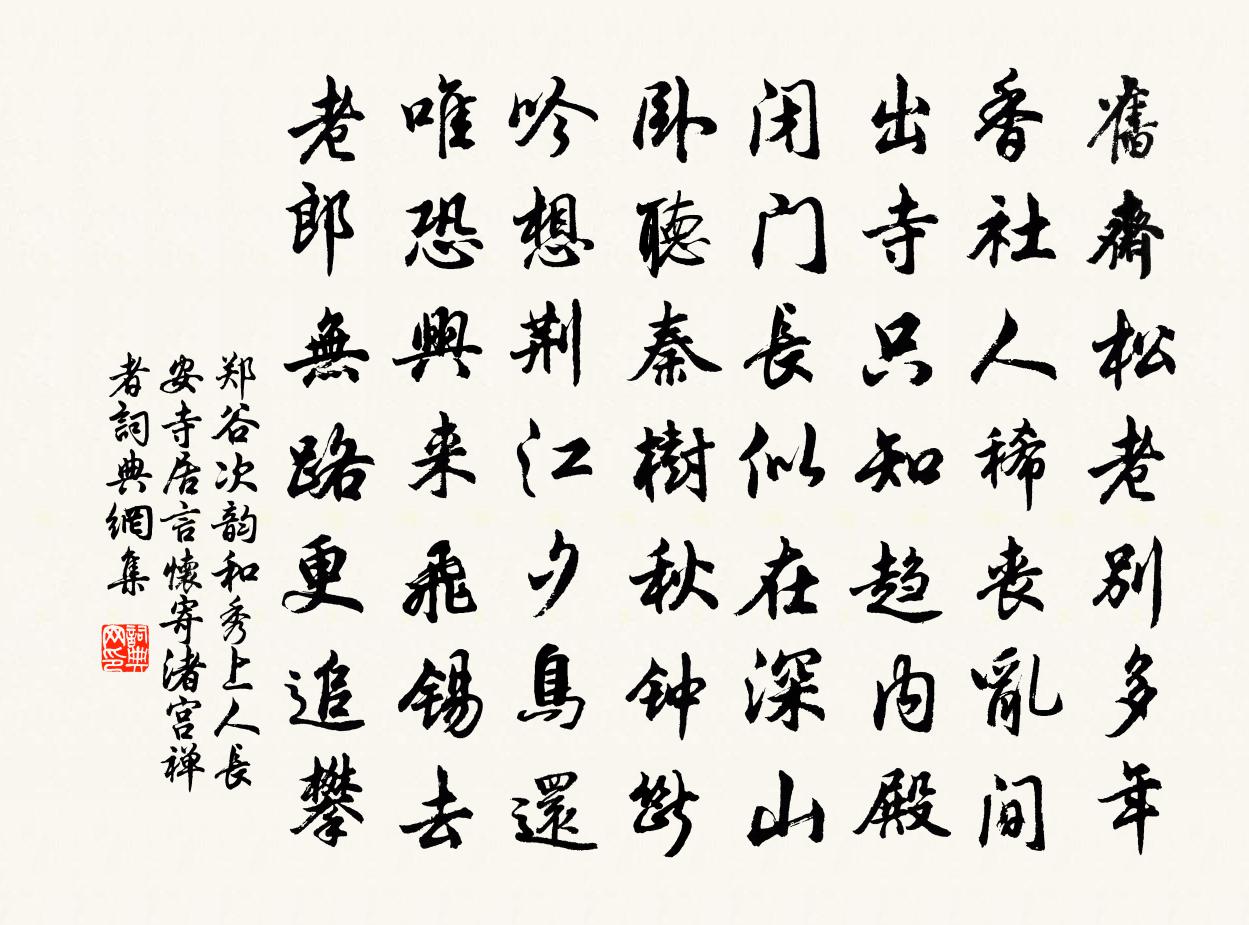 舊齋松老別多年
香社人稀喪亂間
出寺只知趋内殿
闭门長似在深山
卧聽秦樹秋钟斷
吟想荆江夕鳥還
唯恐興来飛锡去
老郎無路更追攀
郑谷次韵和秀上人長
安寺居言懷寄渚宫禅
者詞典網集
詞典
网印